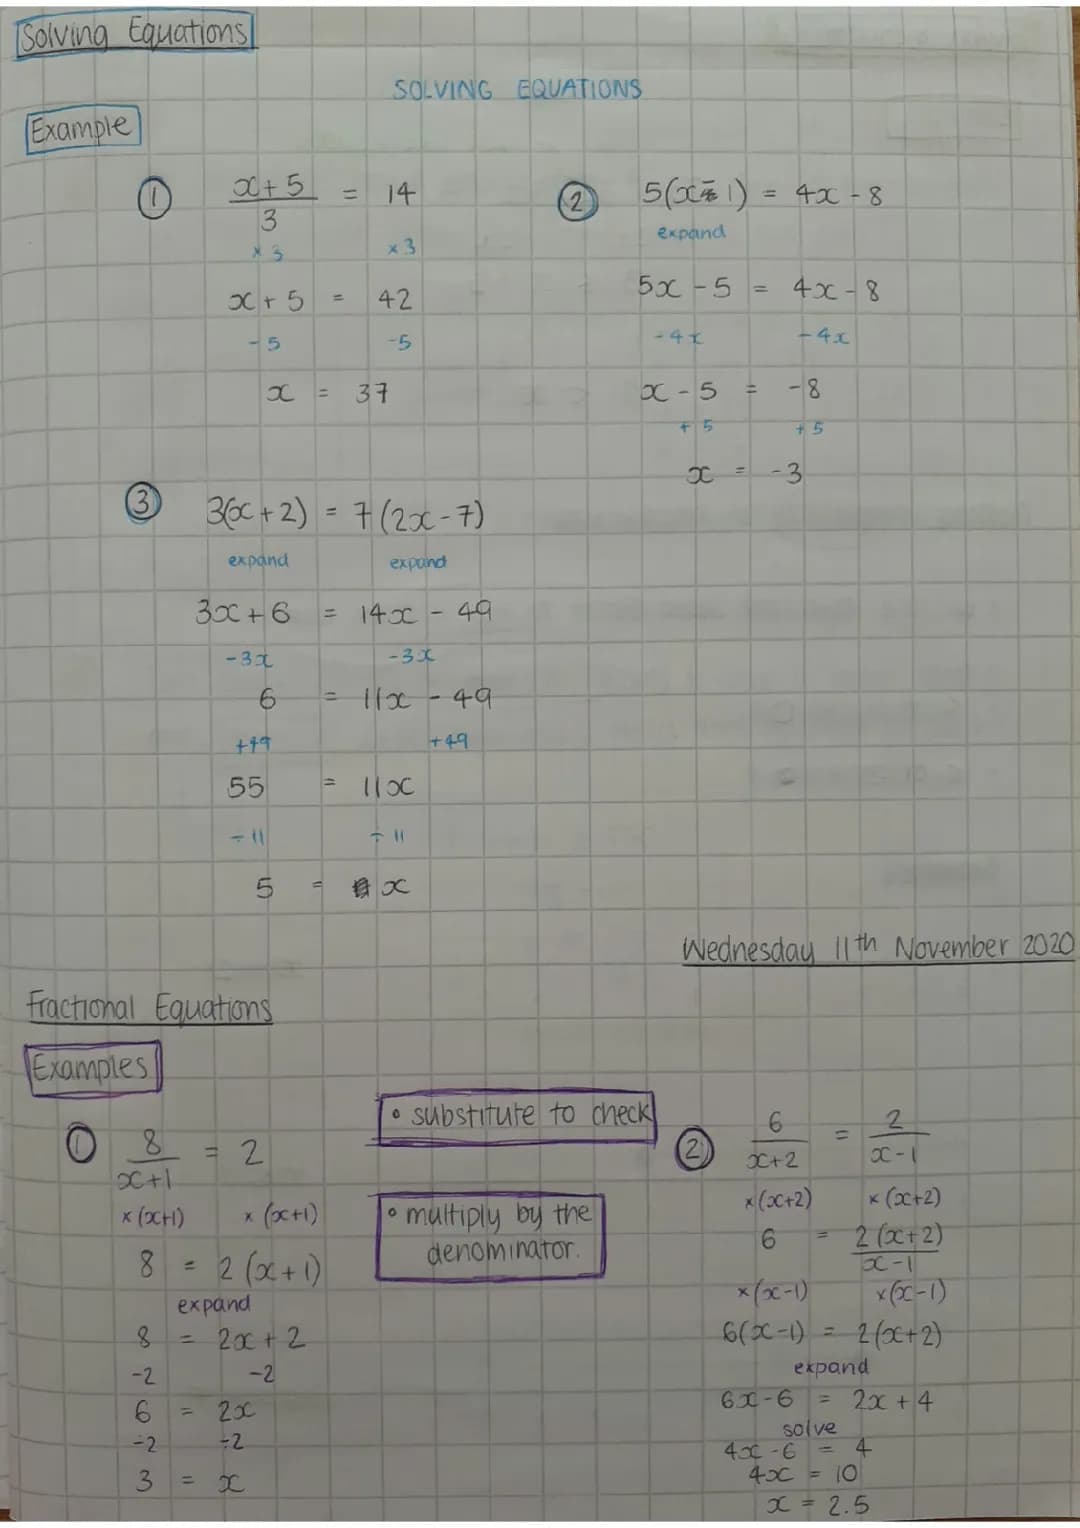 Solving Equations
SOLVING EQUATIONS
Example
① x+5 = 14
3
×3 ×3
x+5 = 42
-5 -5
x = 37
② 5(x-1) = 4x-8
expand
5x-5 = 4x-8
-4x -4x
x-5 = -8
+5 +5
x = -3
③ 3(x+2) = 7(2x-7)
expand expand
3x+6 = 14x-49
-3x -3x
6 = 11x-49
+49 +49
55 = 11x
÷11 ÷11
5 = x
Wednesday 11th November 2020
Fractional Equations
Examples
① 8 = 2
x+1
×(x+1) ×(x+1)
8 = 2(x+1)
expand
8 = 2x+2
-2 -2
6 = 2x
÷2 ÷2
3 = x
• substitute to check
• multiply by the
denominator.
② 6 = 2
x+2 x-1
×(x+2) ×(x+2)
6 = 2(x+2)
x-1
×(x-1) ×(x-1)
6(x-1) = 2(x+2)
expand
6x-6 = 2x+4
solve
4x-6 = 4
4x = 10
x = 2.5